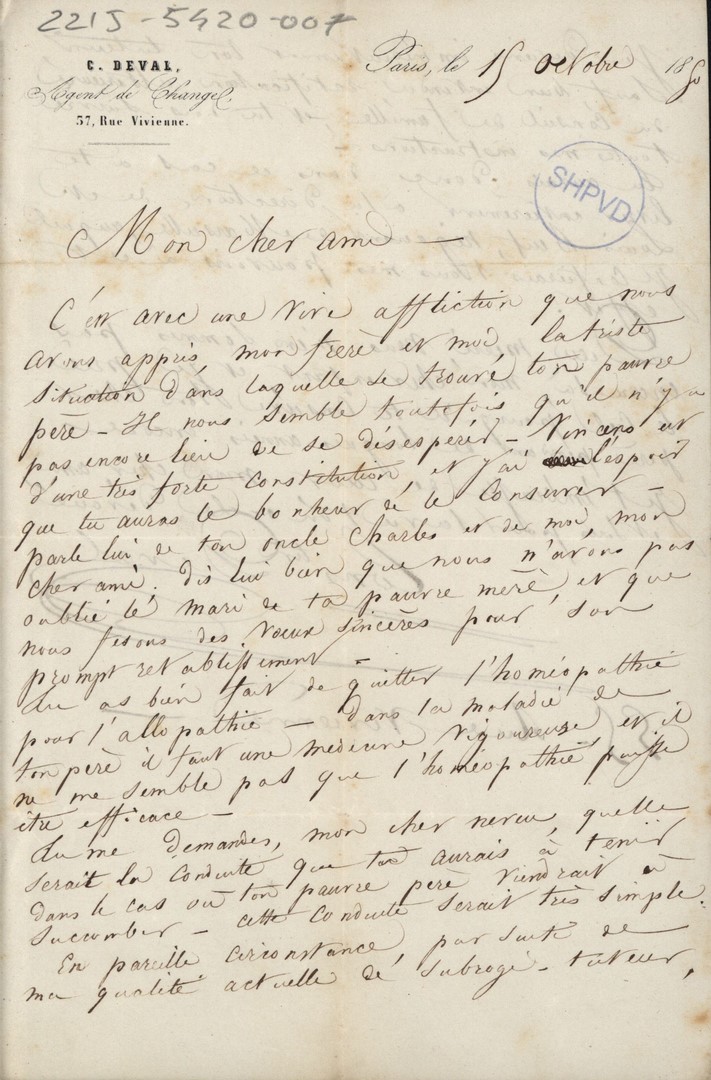 221J-5420-007
C. DEVAL,
Agent de Change,
37, Rue Vivienne.
Paris, le 15 octobre 1850
SHPVD
Mon cher ami —
C'est avec une vive affliction que nous
avons appris, mon frère et moi, la triste
situation dans laquelle se trouve ton pauvre
père — Il nous semble toutefois qu'il n'y a
pas encore lieu de se désespérer — Vincens est
d'une très forte constitution, et j'ai l'espoir
que tu auras le bonheur de le conserver —
parle lui de ton oncle Charles et de moi, mon
cher ami, dis lui bien que nous n'avons pas
oublié le mari de ta pauvre mère, et que
nous fesons des voeux sincères pour son
prompt retablissement —
tu as bien fait de quitter l'homéopathie
pour l'allopathie — dans la maladie de
ton père il faut une médecine vigoureuse, et il
ne me semble pas que l'homéopathie puisse
être efficace —
tu me demandes, mon cher neveu, quelle
serait la conduite que tu aurais à tenir
dans le cas où ton pauvre père viendrait à
succomber — cette conduite serait très simple.
En pareille circonstance, par suite de
ma qualité actuelle de subrogé-tuteur,